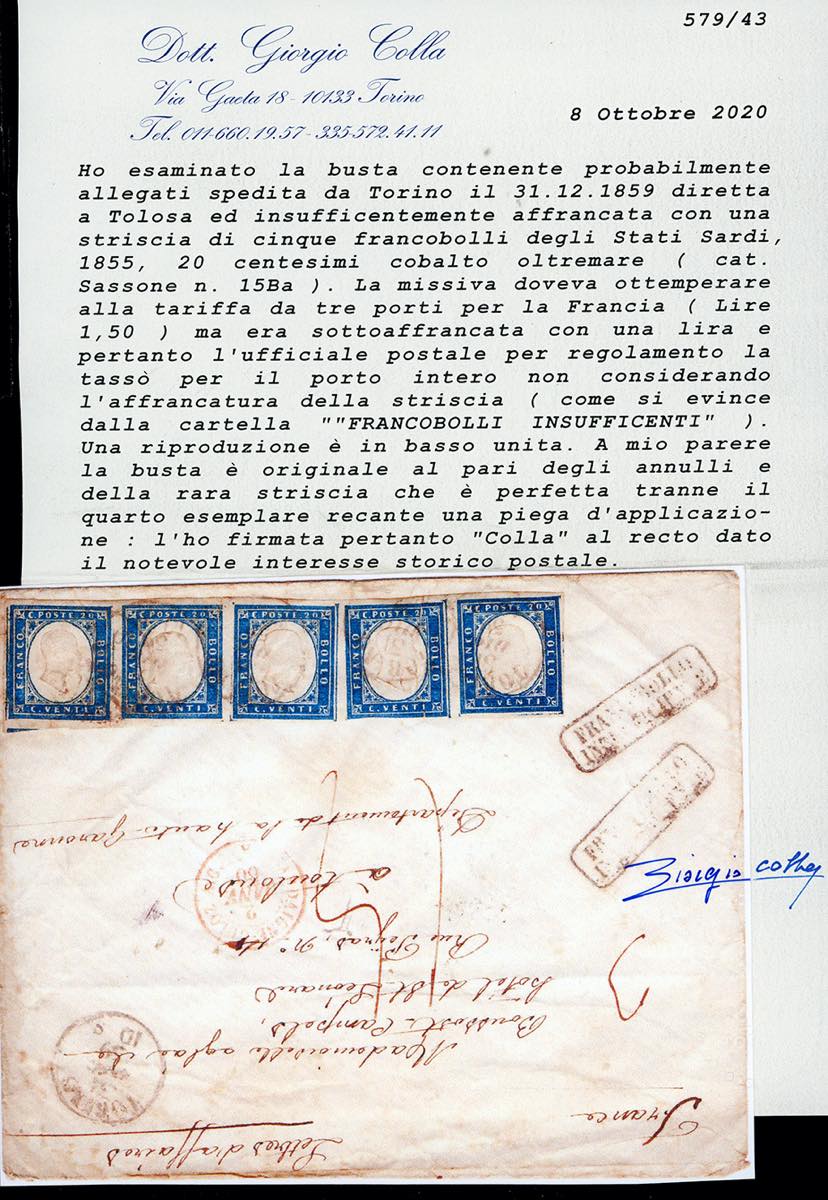 579/43
Dott. Giorgio Colla
Via Gaeta 18 - 10133 Torino
Tel. 011-660.19.57 - 335-572.41.11
8 Ottobre 2020
Ho esaminato la busta contenente probabilmente
allegati spedita da Torino il 31.12.1859 diretta
a Tolosa ed insufficentemente affrancata con una
striscia di cinque francobolli degli Stati Sardi,
1855, 20 centesimi cobalto oltremare ( cat.
Sassone n. 15Ba ). La missiva doveva ottemperare
alla tariffa da tre porti per la Francia ( Lire
1,50 ) ma era sottoaffrancata con una lira e
pertanto l'ufficiale postale per regolamento la
tassò per il porto intero non considerando
l'affrancatura della striscia ( come si evince
dalla cartella ""FRANCOBOLLI INSUFFICENTI" ).
Una riproduzione è in basso unita. A mio parere
la busta è originale al pari degli annulli e
della rara striscia che è perfetta tranne il
quarto esemplare recante una piega d'applicazio-
ne : l'ho firmata pertanto "Colla" al recto dato
il notevole interesse storico postale.
C. POSTE 20 FRANCO BOLLO C. VENTI
C. POSTE 20 FRANCO BOLLO C. VENTI
C. POSTE 20 FRANCO BOLLO C. VENTI
C. POSTE 20 FRANCO BOLLO C. VENTI
C. POSTE 20 FRANCO BOLLO C. VENTI
Giorgio Colla
Lettres d'affaires
France
TORINO
Mademoiselle aglaé
hôtel de St Léonard
Rue Peyras, n°
à toulouse
Département de la haute Garonne
3